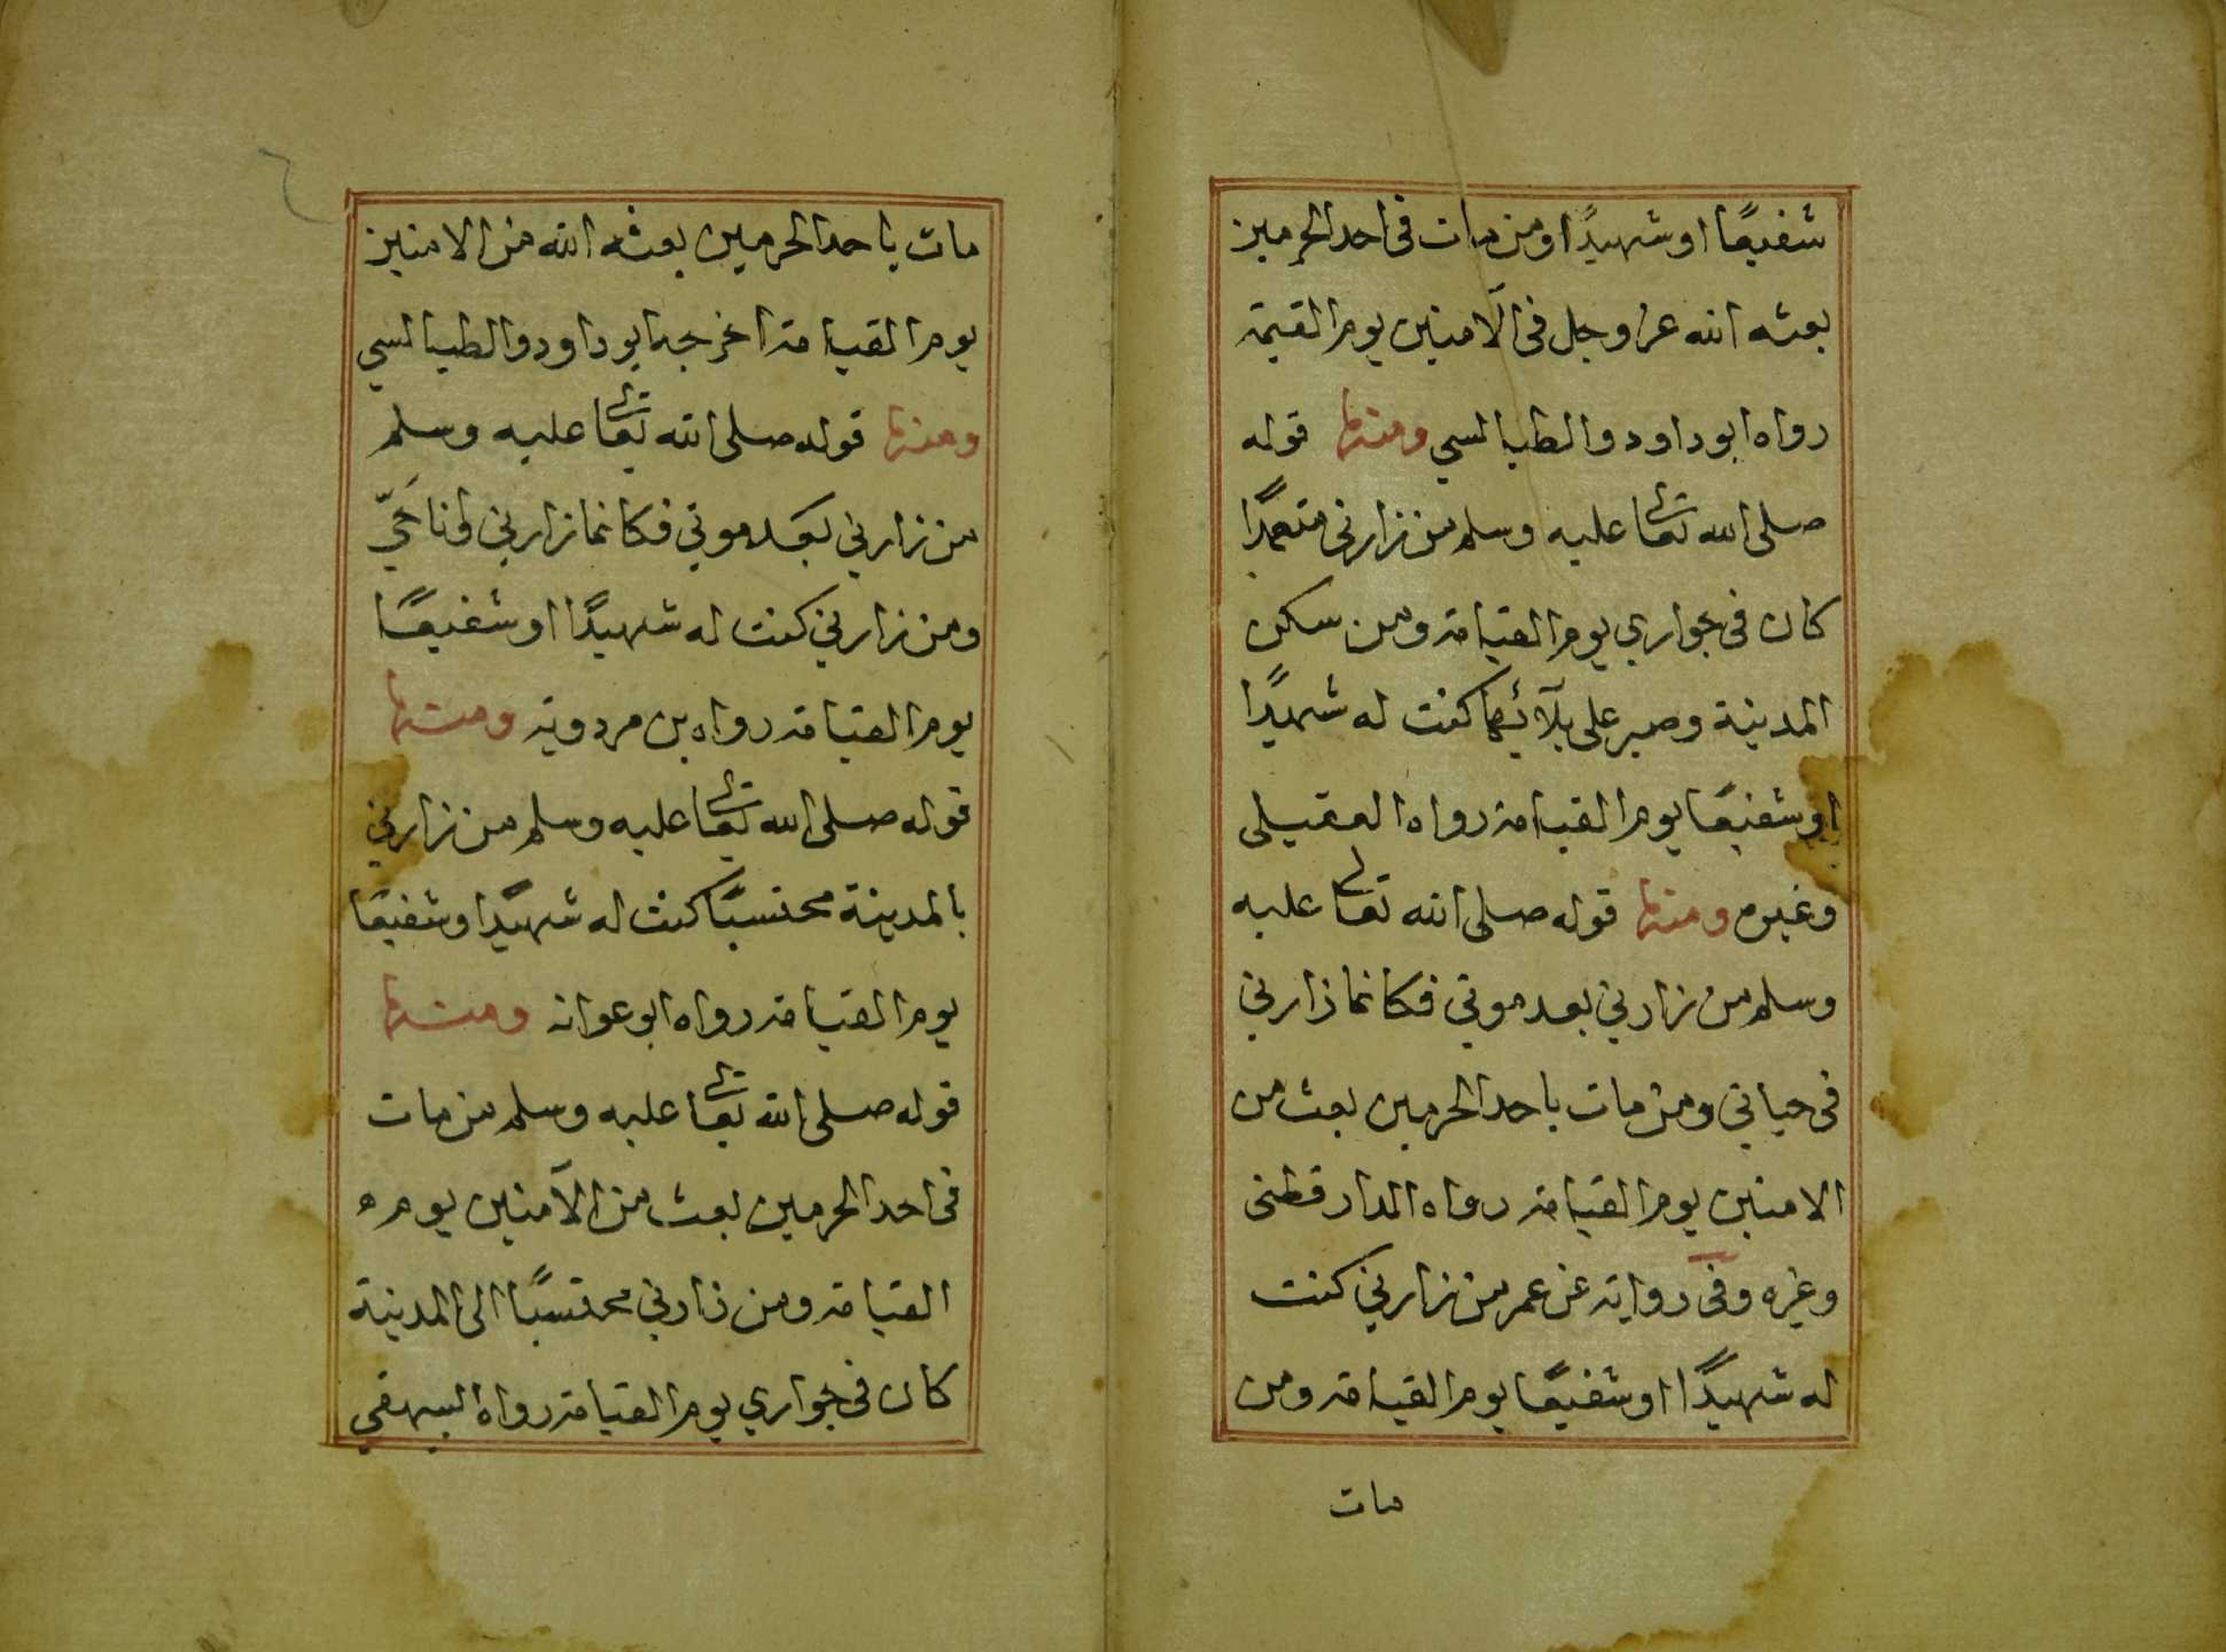 شفيعًا او شهيدًا ومن مات فى احد الحرمين
بعثه الله عز وجل فى الآمنين يوم القيمة
رواه ابو داود والطيالسي ومنها قوله
صلى الله تعالى عليه وسلم من زارنى متعمدًا
كان فى جواري يوم القيامة ومن سكن
المدينة وصبر على بلآئها كنت له شهيدًا
او شفيعًا يوم القيامة رواه العقيلى
وغيره ومنها قوله صلى الله تعالى عليه
وسلم من زارني بعد موتي فكانما زارني
فى حياتي ومن مات باحد الحرمين بعث من
الامنين يوم القيامة رواه الدارقطنى
وغيره وفى رواية عن عمر من زارني كنت
له شهيدًا او شفيعًا يوم القيامة ومن
مات
مات باحد الحرمين بعثه الله من الامنين
يوم القيامة اخرجه ابو داود والطيالسي
ومنها قوله صلى الله تعالى عليه وسلم
من زارني بعد موتي فكانما زارني وانا حَيّ
ومن زارني كنت له شهيدًا او شفيعًا
يوم القيامة رواه بن مردوية ومنها
قوله صلى الله تعالى عليه وسلم من زارني
بالمدينة محتسبًا كنت له شهيدًا وشفيعًا
يوم القيامة رواه ابو عوانه ومنها
قوله صلى الله تعالى عليه وسلم من مات
فى احد الحرمين بعث من الآمنين يوم
القيامة ومن زارني محتسبًا الى المدينة
كان فى جواري يوم القيامة رواه البيهقي